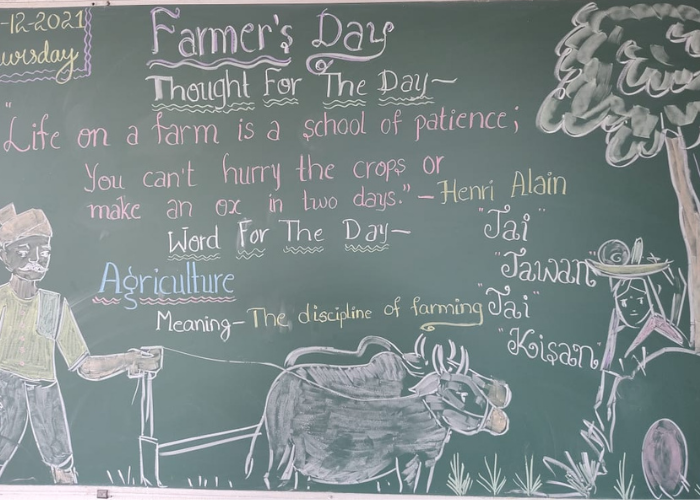 -12-2021
Farmer's Day
Thought For The Day—
"Life on a farm is a school of patience;
You can't hurry the crops or
make an ox in two days." — Henri Alain
Word For The Day—
Agriculture
Meaning— The discipline of farming
"Jai"
"Jawan"
"Jai"
"Kisan"